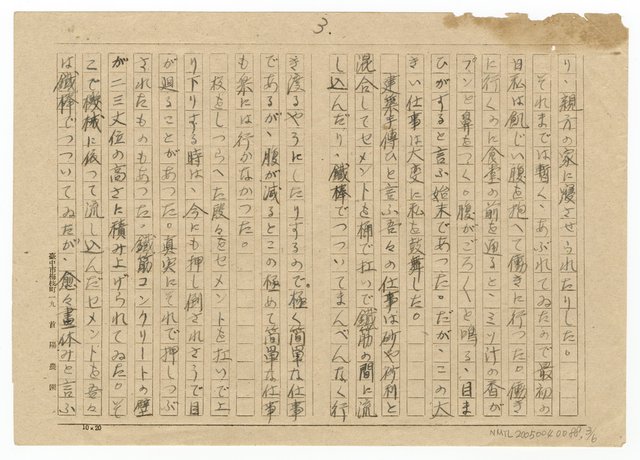 3.
り、親方の家に寢させられたりした。
それまでは暫く、あぶれてゐたので最初の
日私は飢じい腹を抱へて働きに行つた。働き
に行くのに食堂の前を通ると、ミソ汁の香が
プンと鼻をつく。腹がごろ〱と鳴る、目ま
ひがすると言ふ始末であつた。だが、この大
きい仕事は大変に私を鼓舞した。
建築手傳ひと言ふ吾々の仕事は砂や砂利と
混合してセメントを桶で扛いで鐵筋の間に流
し込んだり、鐵棒でつついてまんべんなく行
き渡るやうにしたりするので。極く簡単な仕事
であるが、腹が減るとこの極めて簡単な仕事
も楽には行かなかつた。
板をしつらへた段々をセメントを扛いで上
り下りする時は、今にも押し倒されさうで目
が廻ることがあつた。真実にそれで押しつぶ
されたものもあつた。鐵筋コンクリートの壁
が二三丈位の高さに積み上げられてゐた。そ
こで機械に依つて流し込んだセメントを吾々
は鐵棒でつついてゐたが、愈々晝休みと言ふ
臺中市梅枝町一九 首陽農園
10×20
NMTL20050040088, 3/6